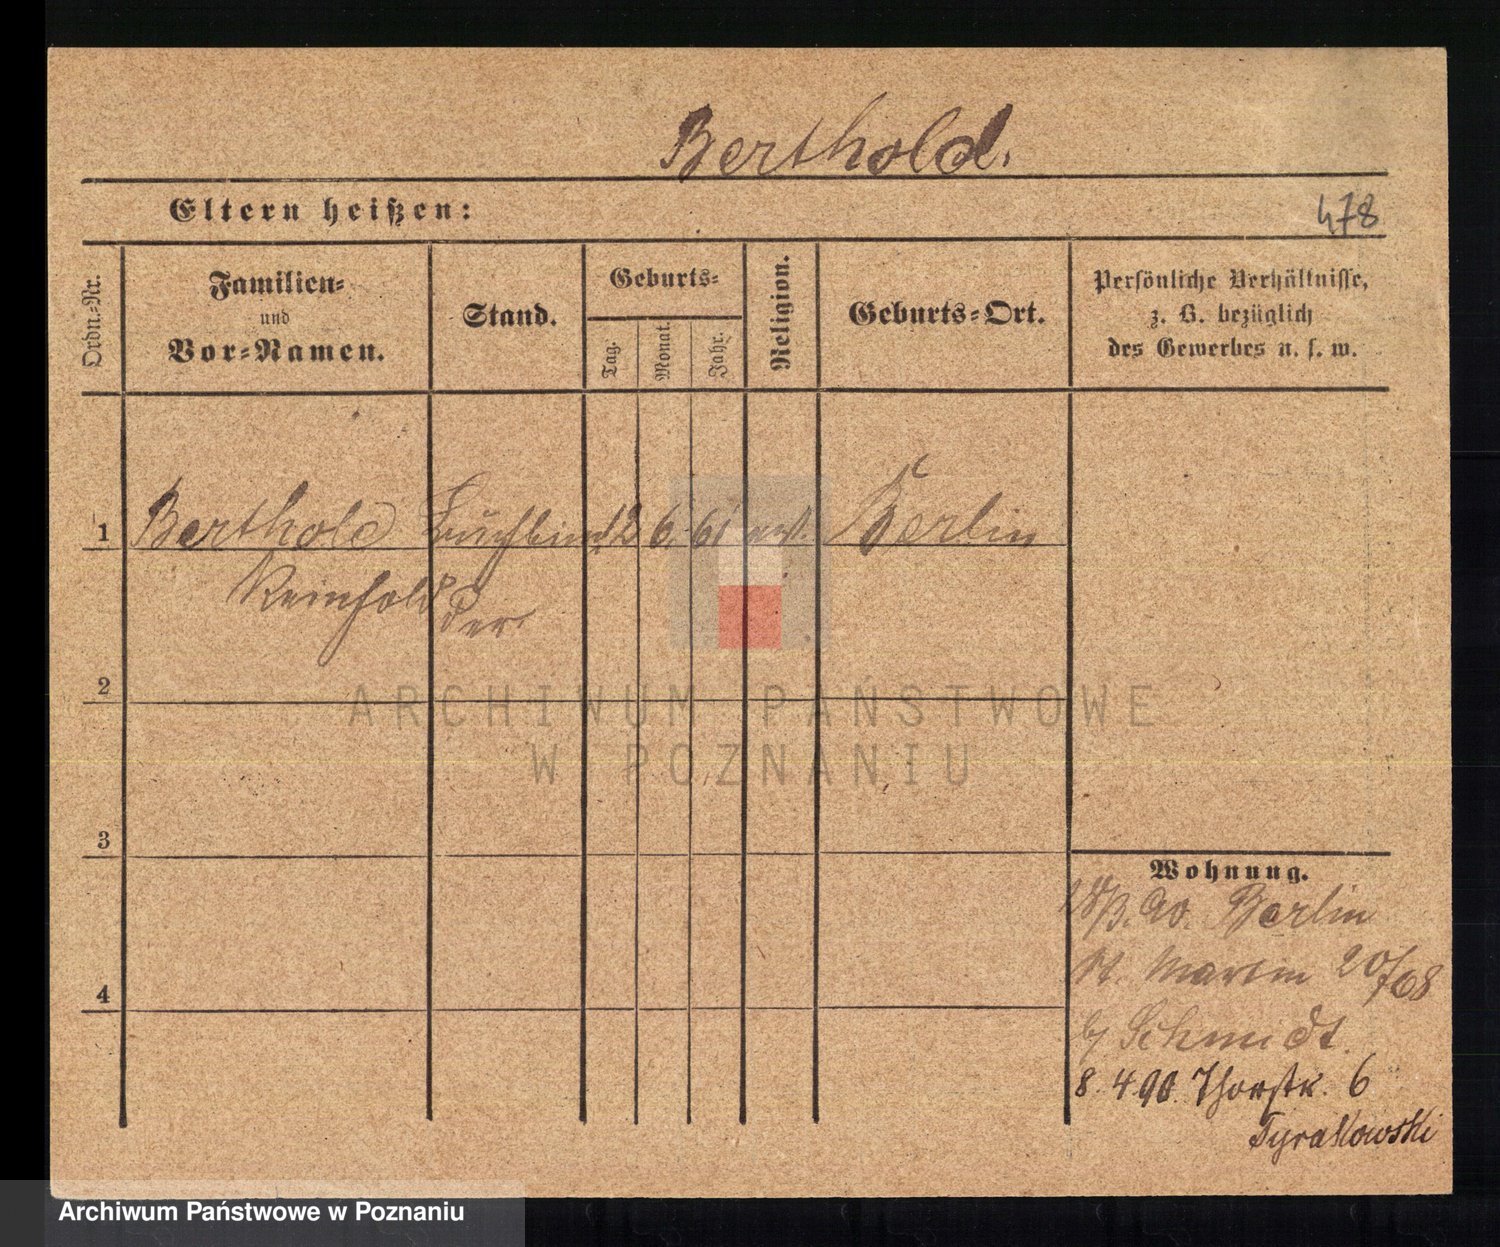 Berthold.
Eltern heißen:
478
Ordn.-Nr.
Familien-
und
Vor-Namen.
Stand.
Geburts-
Tag.
Monat.
Jahr.
Religion.
Geburts-Ort.
Persönliche Verhältnisse,
z. B. bezüglich
des Gewerbes u. s. w.
1 Berthold Buchbin 12 6. 61 ev. Berlin
Reinhold der
2
3
4
Wohnung.
90. Berlin
St. Martin 20/68
b/ Schmidt.
8. 4 90. Thorstr. 6
Tyrakowski
ARCHIWUM PAŃSTWOWE
W POZNANIU
Archiwum Państwowe w Poznaniu